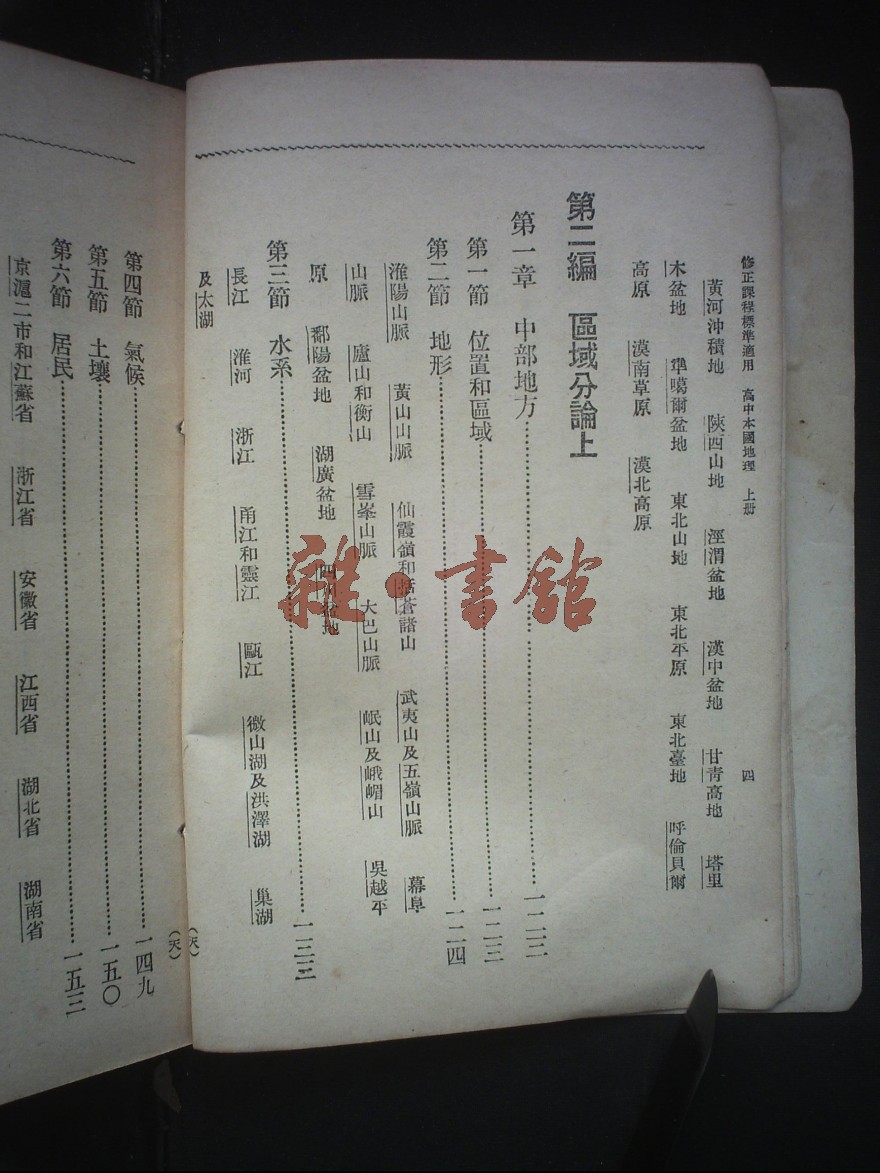 修正課程標準適用 高中本國地理 上册 四
黃河沖積地 陝西山地 涇渭盆地 漢中盆地 甘青高地 塔里
木盆地 準噶爾盆地 東北山地 東北平原 東北臺地 呼倫貝爾
高原 漠南草原 漠北高原
第二編 區域分論上
第一章 中部地方 一二三
第一節 位置和區域 一二三
第二節 地形 一二四
淮陽山脈 黃山山脈 仙霞嶺和括蒼諸山 武夷山及五嶺山脈 幕阜
山脈 廬山和衡山 雪峯山脈 大巴山脈 岷山及峨嵋山 吳越平
原 鄱陽盆地 湖廣盆地 四川盆地
第三節 水系 一三三
長江 淮河 浙江 甬江和靈江 甌江 微山湖及洪澤湖 巢湖
及太湖
(天)
(天)
第四節 氣候 一四九
第五節 土壤 一五〇
第六節 居民 一五三
京滬二市和江蘇省 浙江省 安徽省 江西省 湖北省 湖南省
雜·書館